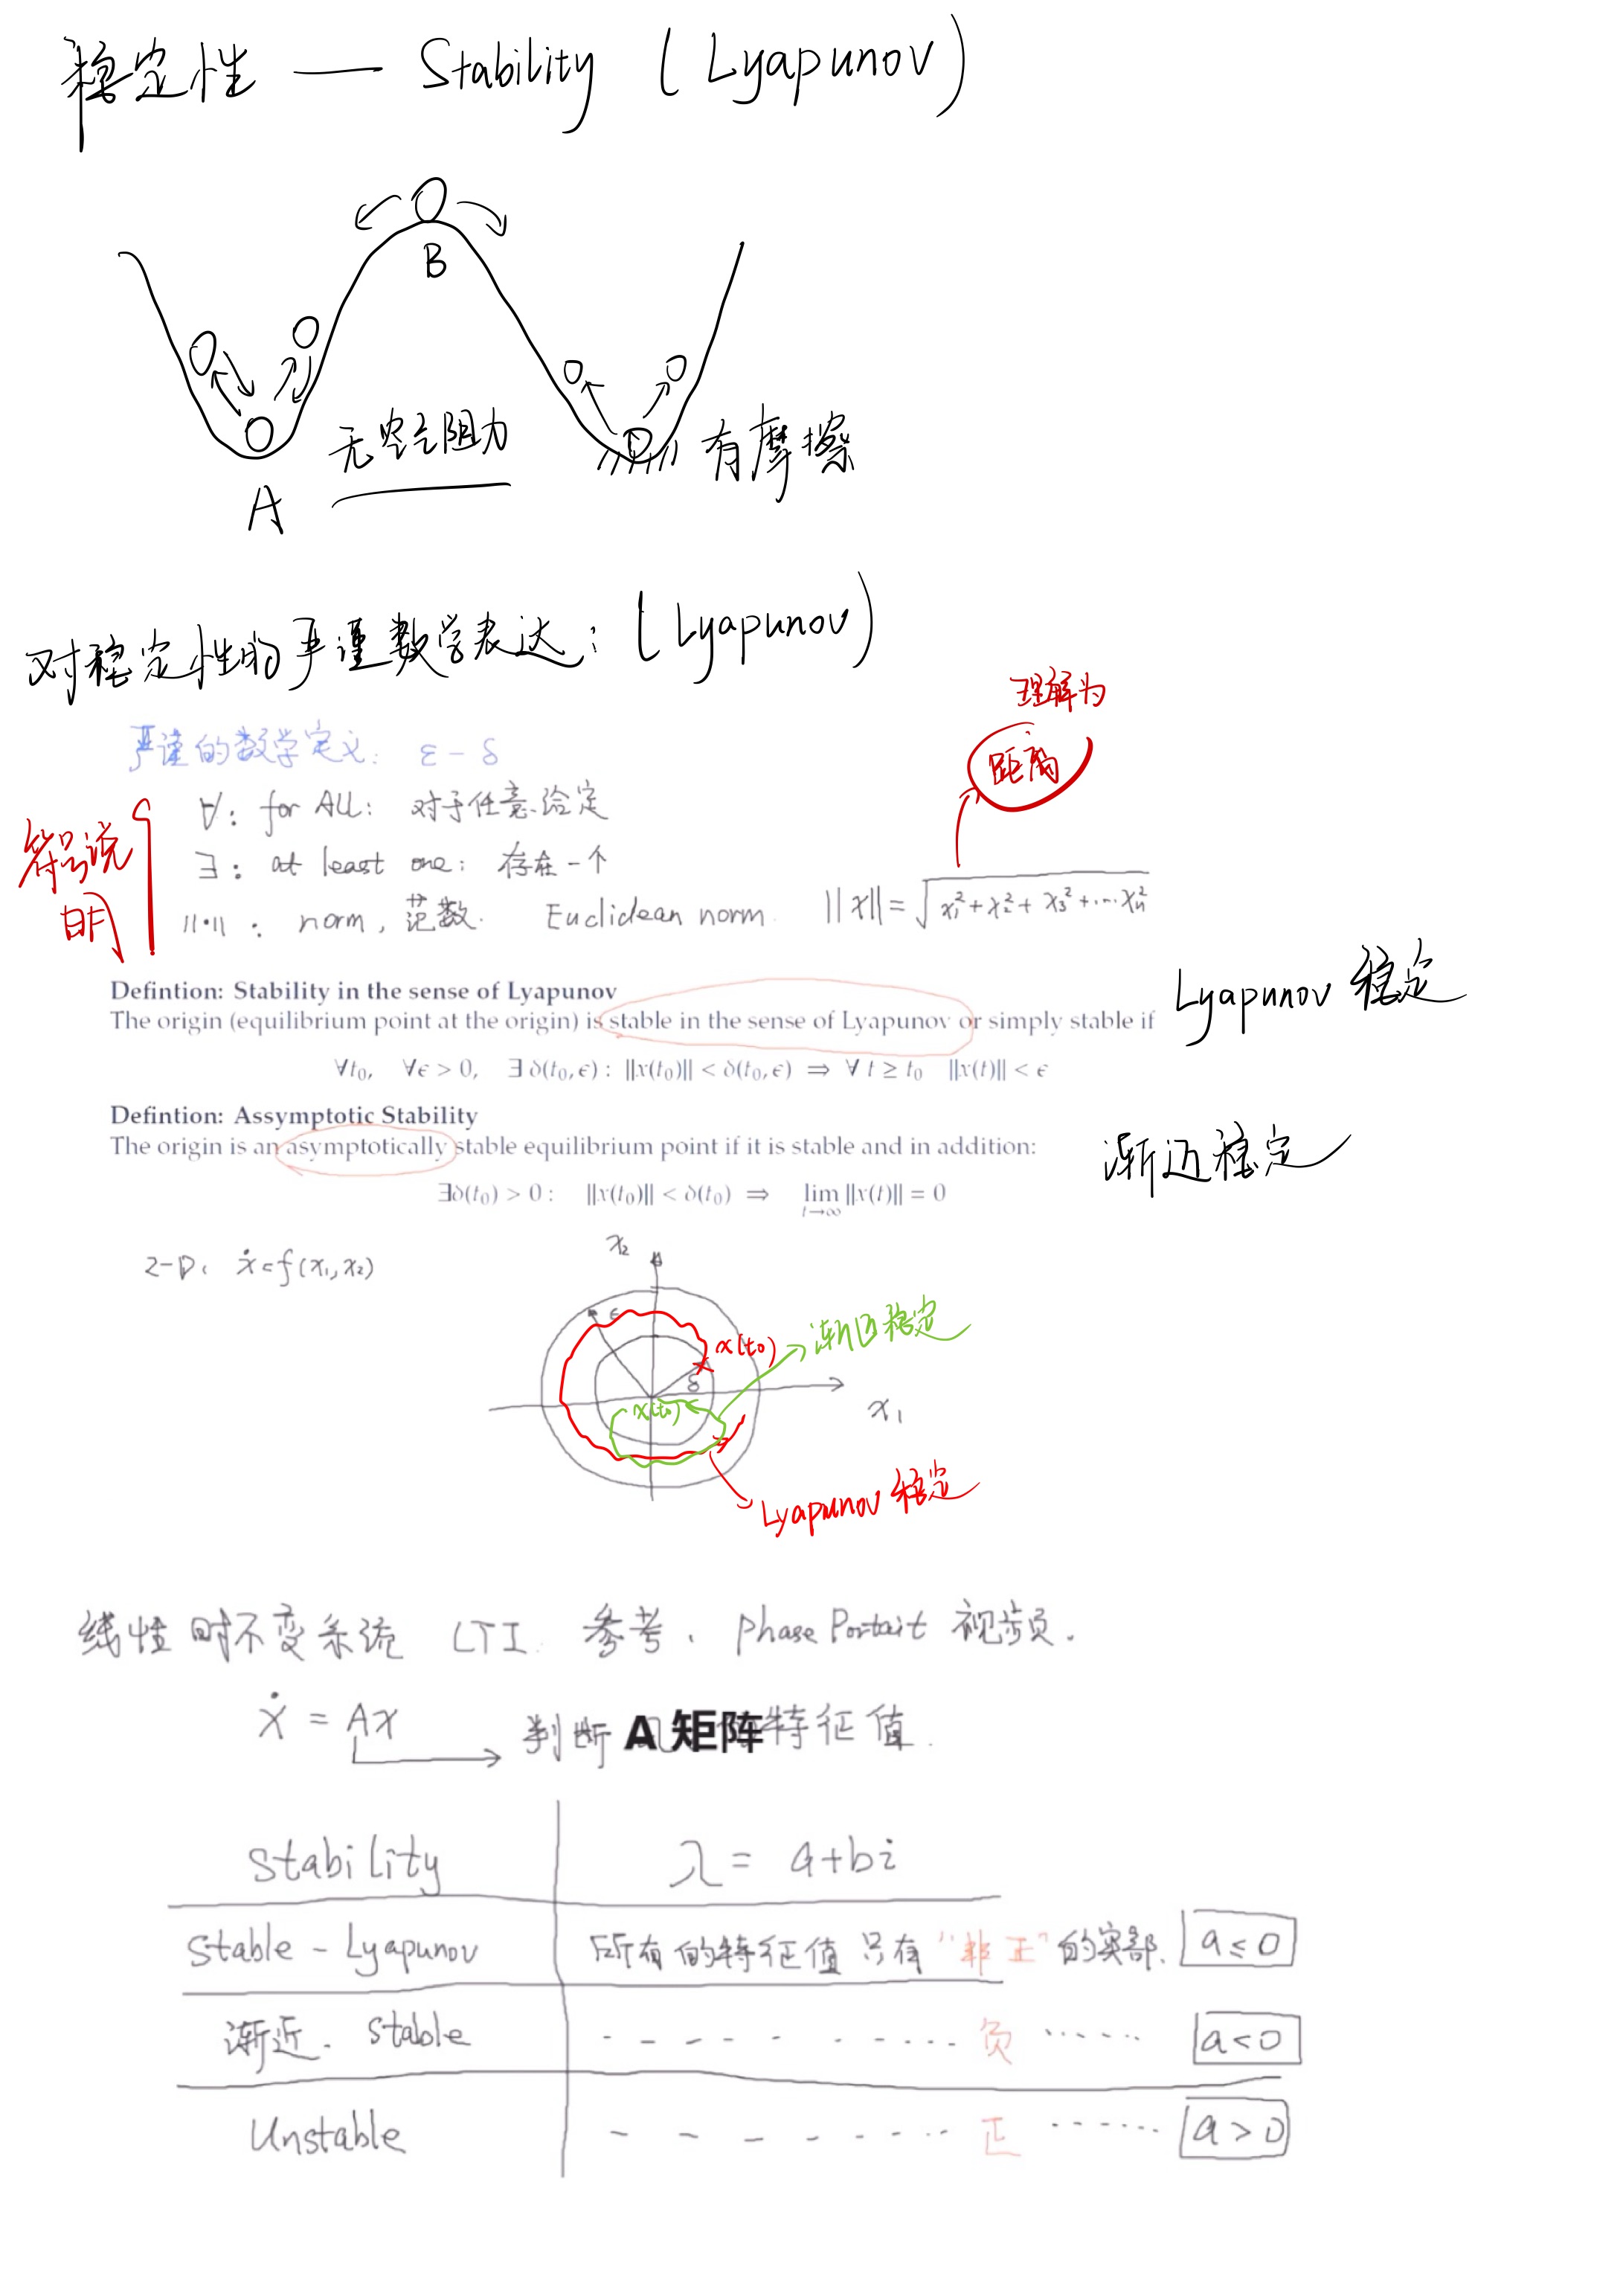 稳定性 — Stability (Lyapunov)
B
无空气阻力
有摩擦
A
对稳定性的严谨数学表达: (Lyapunov)
理解为
距离
严谨的数学定义: ε - δ
符号说明
∀: for ALL: 对于任意给定
∃: at least one: 存在一个
||·||: norm, 范数. Euclidean norm. ||x|| = √(x₁² + x₂² + x₃² + ... xₙ²)
Defintion: Stability in the sense of Lyapunov
The origin (equilibrium point at the origin) is stable in the sense of Lyapunov or simply stable if
Lyapunov 稳定
∀t₀, ∀ϵ > 0, ∃ δ(t₀, ϵ) : ||x(t₀)|| < δ(t₀, ϵ) ⇒ ∀ t ≥ t₀ ||x(t)|| < ϵ
Defintion: Assymptotic Stability
The origin is an asymptotically stable equilibrium point if it is stable and in addition:
渐近稳定
∃δ(t₀) > 0 : ||x(t₀)|| < δ(t₀) ⇒ lim t→∞ ||x(t)|| = 0
2-D. ẋ = f(x₁, x₂)
x₂
ε
x(t₀)
渐近稳定
δ
x(t₀)
x₁
Lyapunov 稳定
线性时不变系统 LTI. 参考. Phase Portait 视频.
ẋ = Ax
判断 A 矩阵 特征值.
Stability λ = a+bi
Stable - Lyapunov 所有的特征值只有 "非正" 的实部. a ≤ 0
渐近. Stable - - - - - - - - 负 ...... a < 0
Unstable - - - - - - - - 正 ...... a > 0